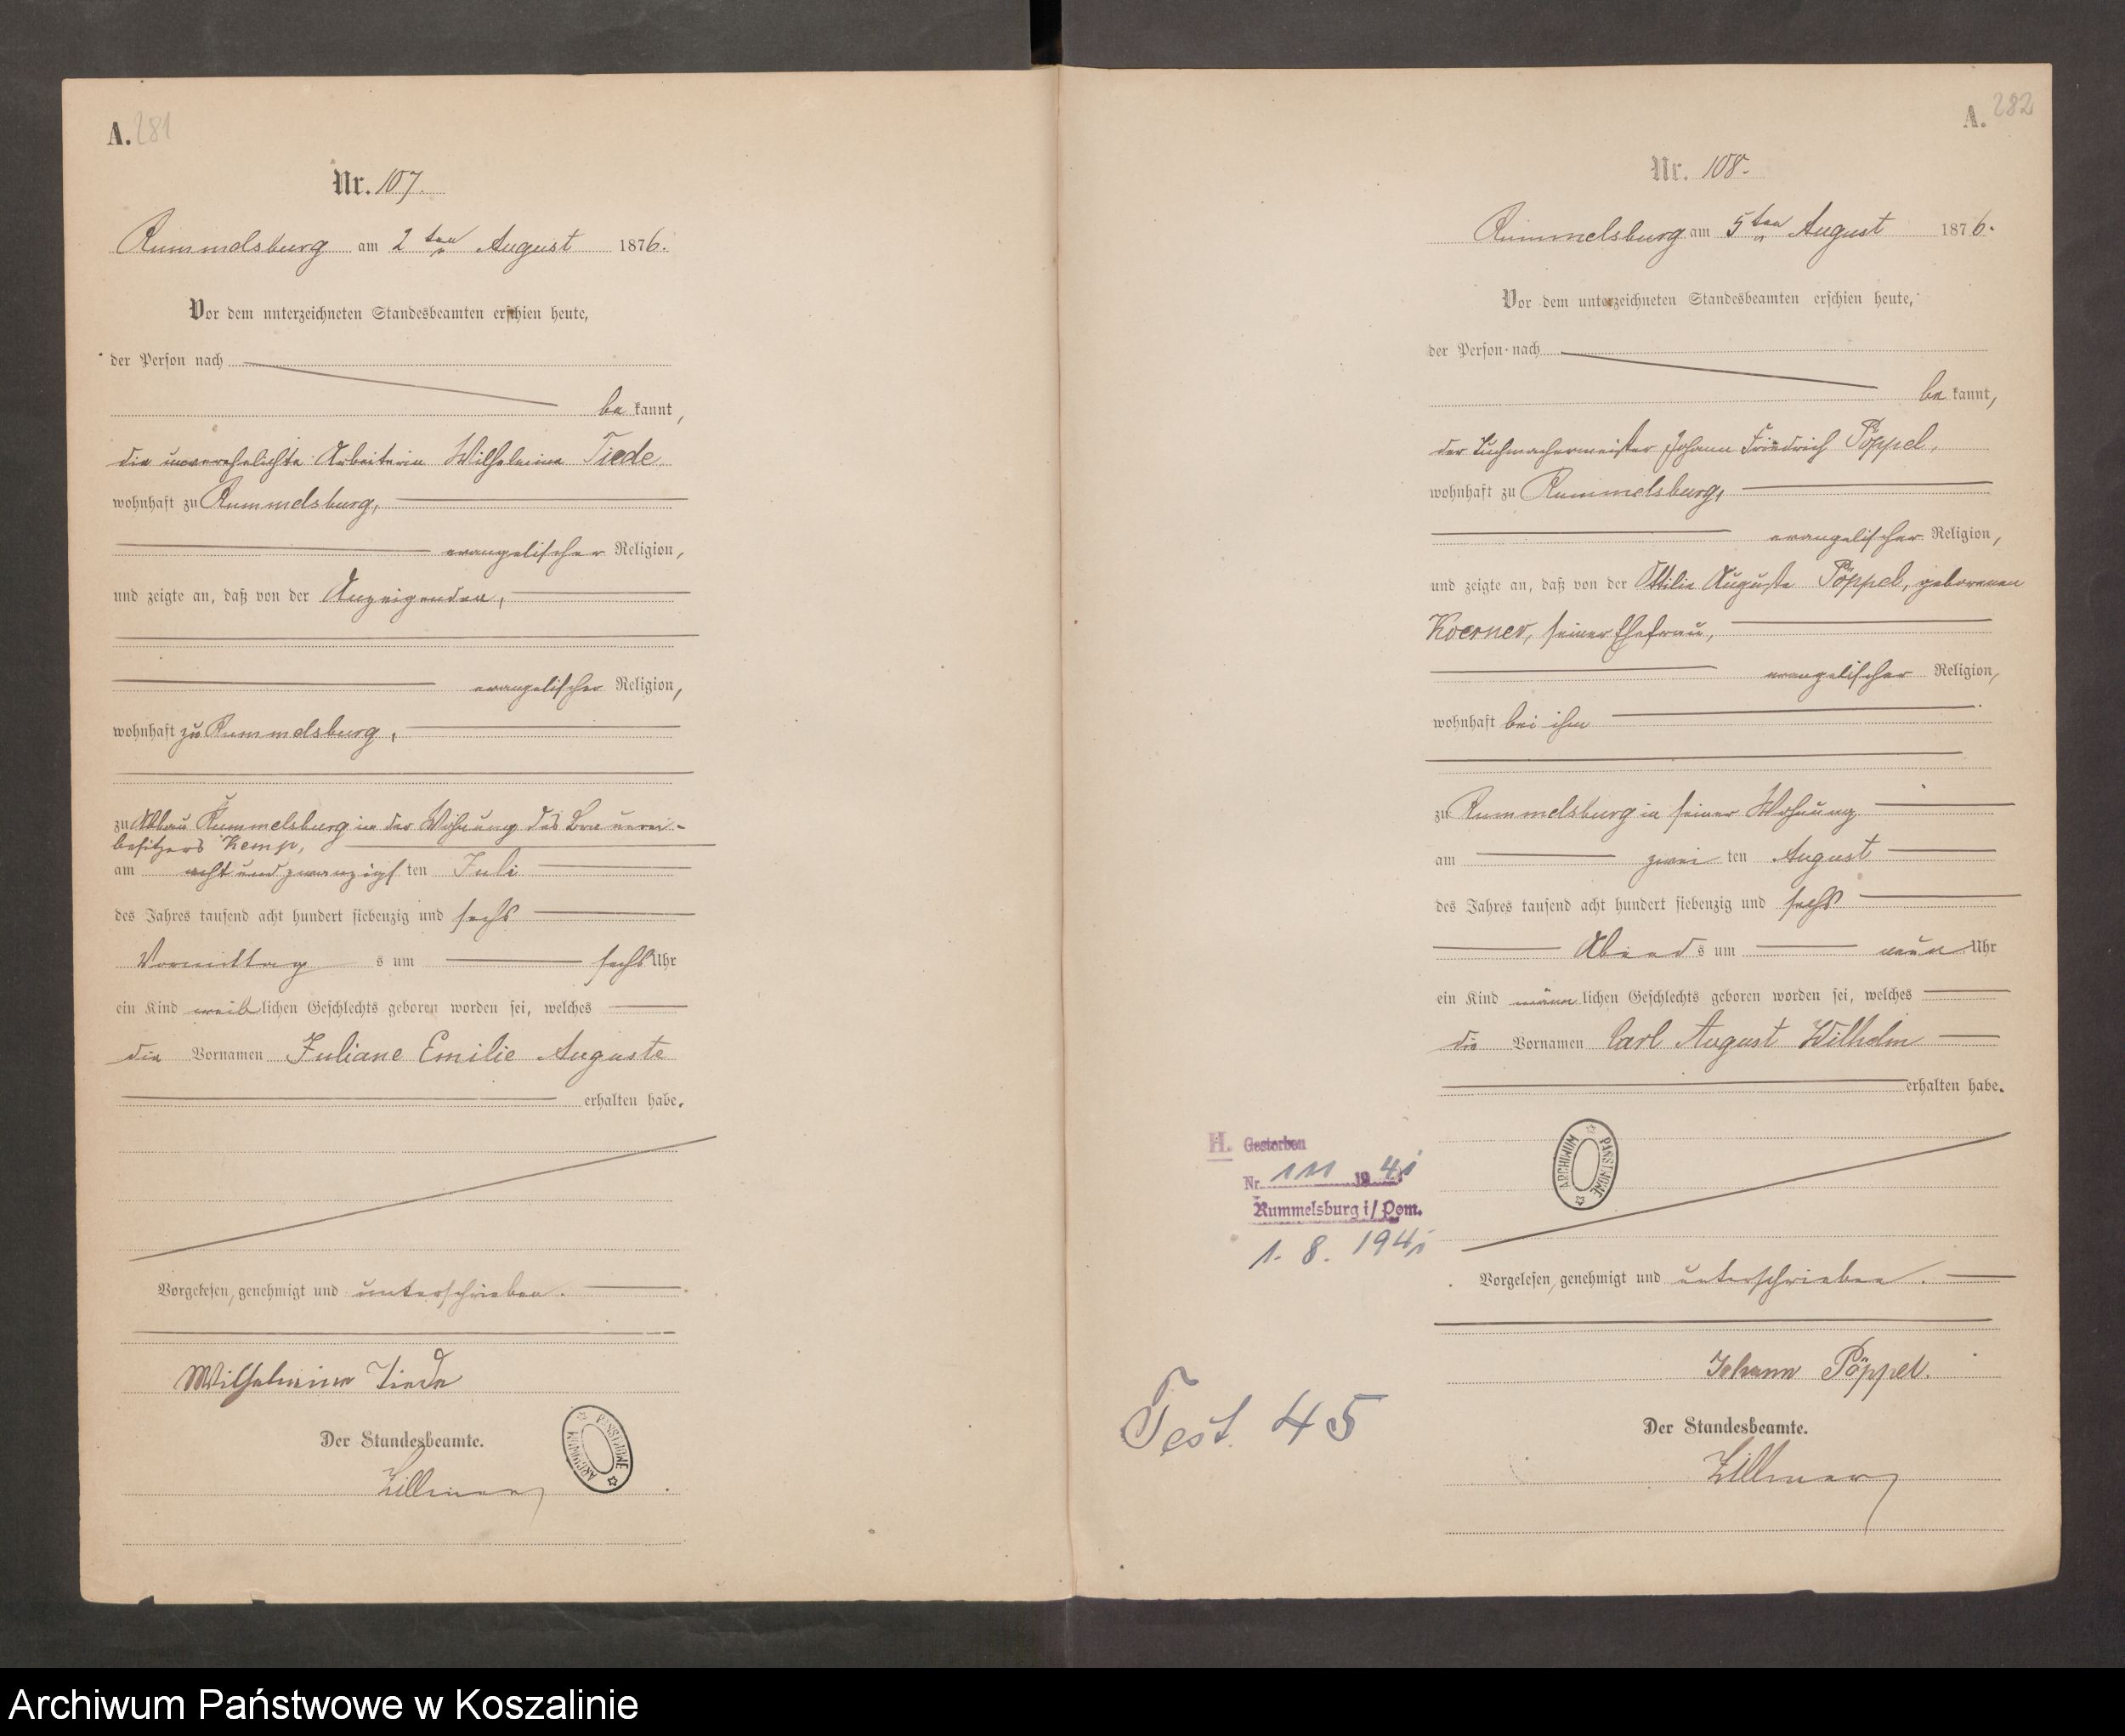 A. 281
Nr. 107.
Rummelsburg am 2ten August 1876.
Vor dem unterzeichneten Standesbeamten erschien heute,
der Person nach
be kannt,
die unverehelichte Arbeiterin Wilhelmine Tiede
wohnhaft zu Rummelsburg,
evangelischer Religion,
und zeigte an, daß von der Anzeigenden,
evangelischer Religion,
wohnhaft zu Rummelsburg,
zu Abbau Rummelsburg in der Wohnung des Brauerei-
besitzers Kemp,
am acht und zwanzigsten Juli
des Jahres tausend acht hundert siebenzig und sechs
Vormittags um sechs Uhr
ein Kind weiblichen Geschlechts geboren worden sei, welches
die Vornamen Juliane Emilie Auguste
erhalten habe.
Vorgelesen, genehmigt und unterschrieben.
Wilhelmine Tiede
Der Standesbeamte.
Zillmer
ARCHIWUM PAŃSTWOWE
A. 282
Nr. 108.
Rummelsburg am 5ten August 1876.
Vor dem unterzeichneten Standesbeamten erschien heute,
der Person nach
be kannt,
der Tuchmachermeister Johann Friedrich Pöppel,
wohnhaft zu Rummelsburg,
evangelischer Religion,
und zeigte an, daß von der Ottilie Auguste Pöppel, geborenen
Koerner, seiner Ehefrau,
evangelischer Religion,
wohnhaft bei ihm
zu Rummelsburg in seiner Wohnung
am zwei ten August
des Jahres tausend acht hundert siebenzig und sechs
Abends um neun Uhr
ein Kind männlichen Geschlechts geboren worden sei, welches
die Vornamen Carl August Wilhelm
erhalten habe.
H. Gestorben
Nr. 111 1941
Rummelsburg i/Pom.
1. 8. 1941
ARCHIWUM PAŃSTWOWE
Vorgelesen, genehmigt und unterschrieben.
Johann Pöppel.
Test. 45
Der Standesbeamte.
Zillmer
Archiwum Państwowe w Koszalinie